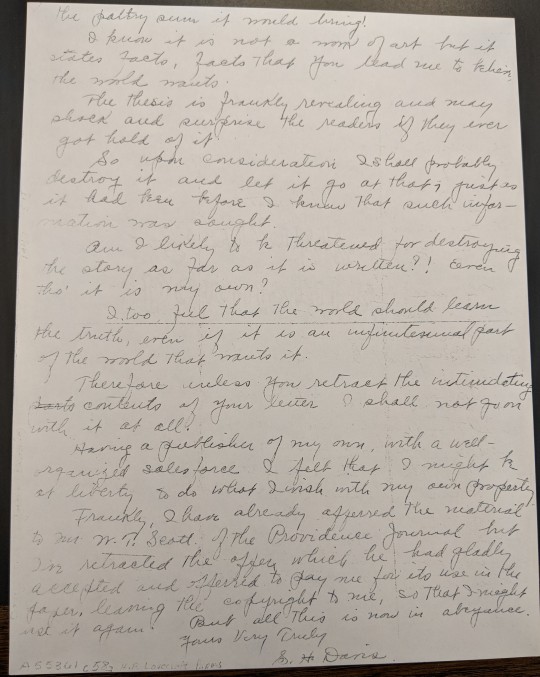 the paltry sum it would bring!
I know it is not a work of art but it
states facts, facts that you lead me to believe
the world wants.
The thesis is frankly revealing and may
shock and surprise the readers if they ever
got hold of it.
So upon consideration I shall probably
destroy it and let it go at that, just as
it had been before I knew that such infor-
mation was sought.
Am I likely to be threatened for destroying
the story as far as it is written?! Even
tho' it is my own?
I, too, feel that the world should learn
the truth, even if it is an infinitesimal part
of the world that wants it.
Therefore unless you retract the intimidating
contents of your letter I shall not go on
with it at all.
Having a publisher of my own, with a well-
organized sales force I felt that I might be
at liberty to do what I wish with my own property.
Frankly, I have already offered the material
to Mr W. T. Scott of the Providence Journal but
I've retracted the offer, which he had gladly
accepted and offered to pay me for its use in the
paper, leaving the copyright to me, so that I might
use it again. But all this is now in abeyance.
Yours Very Truly
S. H. Davis.